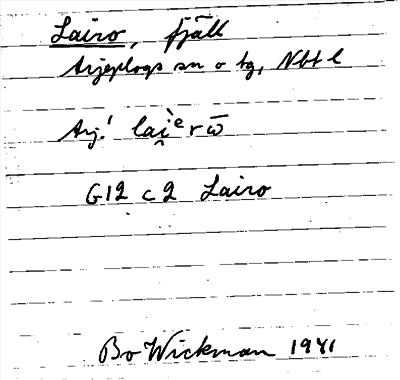 Lairo, fjäll
Arjeplogs sn o tg, Nbt l
Arj.! lai̯ᵉrω̄
G12 c2 Lairo
Bo Wickman 1941